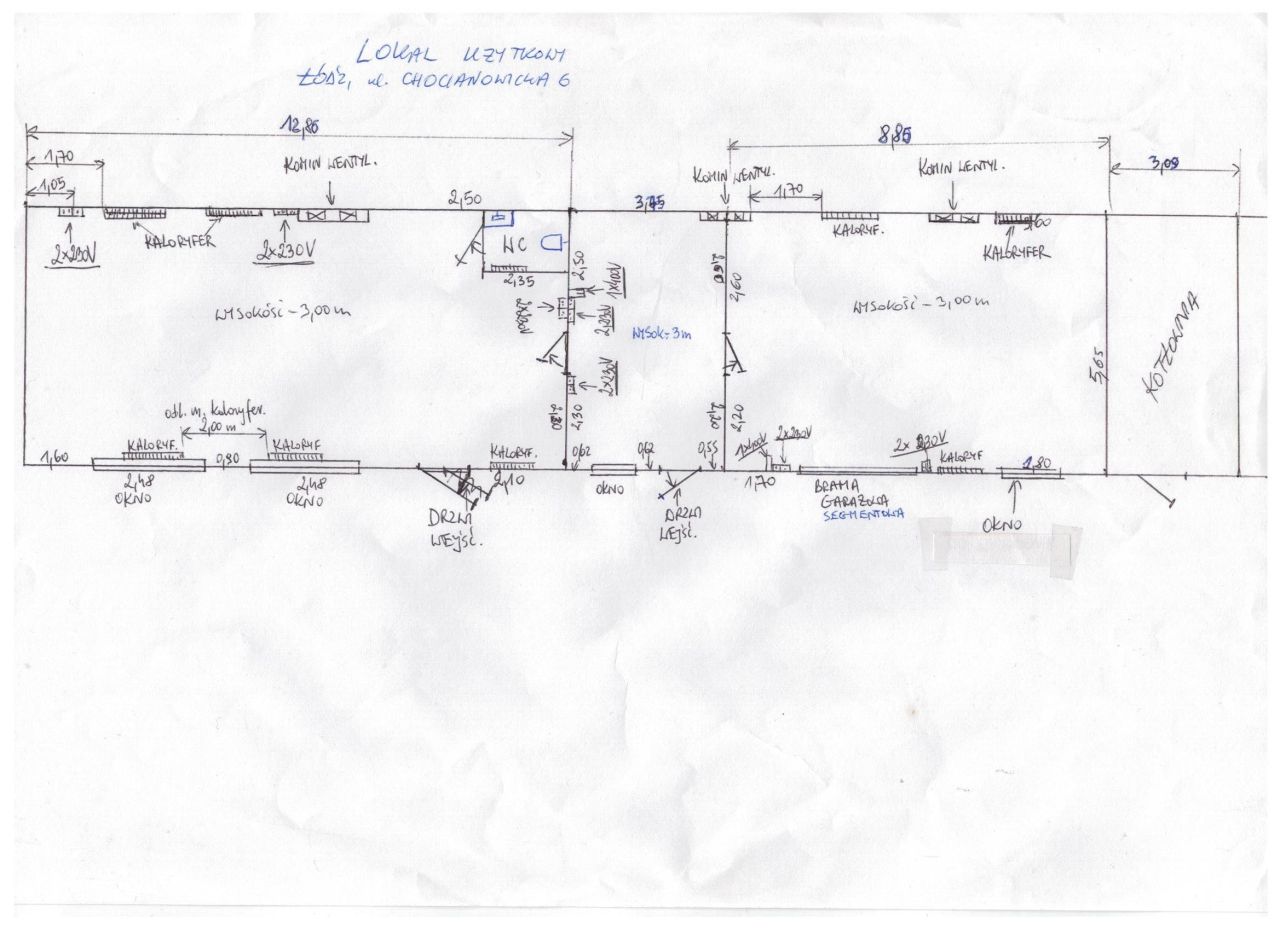 LOKAL UŻYTKOWY
ŁÓDŹ, ul. CHOCIANOWICKA 6
12,86
8,85
3,09
1,70
1,05
KOMIN WENTYL.
2,50
KOMIN WENTYL.
1,70
KOMIN WENTYL.
2x230V
KALORYFER
2x230V
WC
KALORYF.
KALORYFER
2,35
2,50
1x400V
2,60
WYSOKOŚĆ - 3,00 m
2x230V
WYSOK - 3m
WYSOKOŚĆ - 3,00 m
KOTŁOWNIA
2x230V
5,65
odl. m. kaloryfer.
2,00 m
2,30
2,20
KALORYF.
KALORYF.
KALORYF.
0,62
0,62
0,55
1x400V
2x230V
2x230V
KALORYF
1,60
2,48
OKNO
0,80
2,48
OKNO
2,10
OKNO
1,70
1,80
DRZWI
WEJŚĆ.
DRZWI
WEJŚĆ.
BRAMA
GARAŻOWA
SEGMENTOWA
OKNO